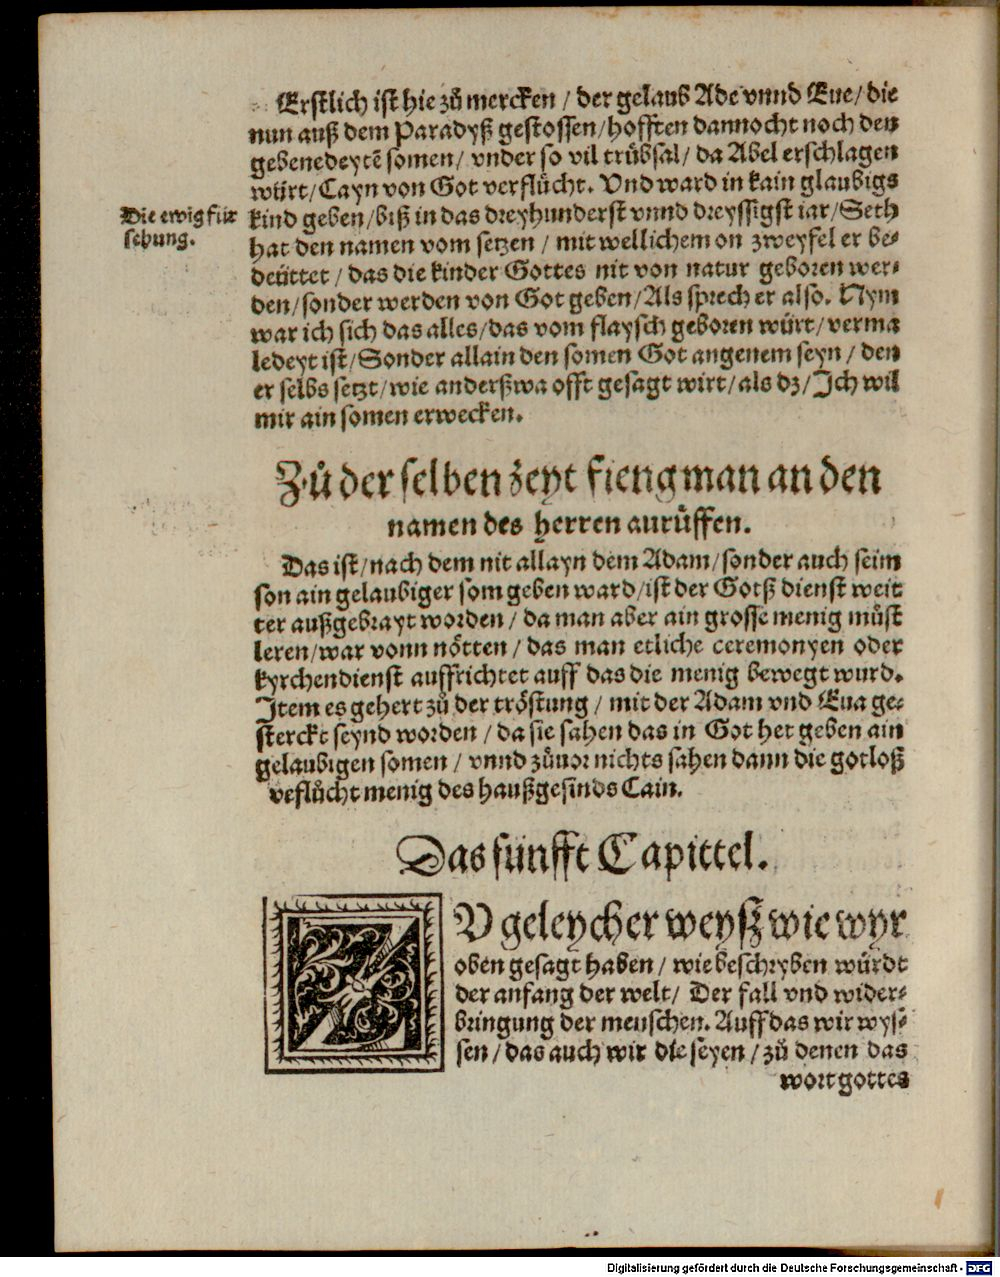 Erstlich ist hie zů mercken / der gelaub Ade vnnd Eue / die
nun auß dem Paradyß gestossen / hofften dannocht noch den
gebenedeytē somen / vnder so vil trübsal / da Abel erschlagen
würt / Cayn von Got verflůcht. Vnd ward in kain glaubigs
Die ewig für
sehung.
kind geben / biß in das dreyhunderst vnnd dreyssigst iar / Seth
hat den namen vom setzen / mit wellichem on zweyfel er be⸗
deüttet / das die kinder Gottes nit von natur geboren wer⸗
den / sonder werden von Got geben / Als sprech er also. Nym
war ich sich das alles / das vom flaysch geboren würt / verma
ledeyt ist / Sonder allain den somen Got angenem seyn / den
er selbs setzt / wie anderßwa offt gesagt wirt / als dz / Ich wil
mir ain somen erwecken.
Zů der selben zeyt fieng man an den
namen des herren anrůffen.
Das ist / nach dem nit allayn dem Adam / sonder auch seim
son ain gelaubiger som geben ward / ist der Gotß dienst weit
ter außgebrayt worden / da man aber ain grosse menig můst
leren / war vonn nötten / das man etliche ceremonyen oder
kyrchendienst auffrichtet auff das die menig bewegt wurd.
Item es gehert zů der tröstung / mit der Adam vnd Eua ge⸗
sterckt seynd worden / da sie sahen das in Got het geben ain
gelaubigen somen / vnnd zůuor nichts sahen dann die gotloß
veflůcht menig des haußgesinds Cain.
Das fünfft Capittel.
ZV geleycher weyß wie wyr
oben gesagt haben / wie beschryben würdt
der anfang der welt / Der fall vnd wider⸗
bringung der menschen. Auff das wir wys⸗
sen / das auch wir die seyen / zů denen das
wort gottes
Digitalisierung gefördert durch die Deutsche Forschungsgemeinschaft - DFG